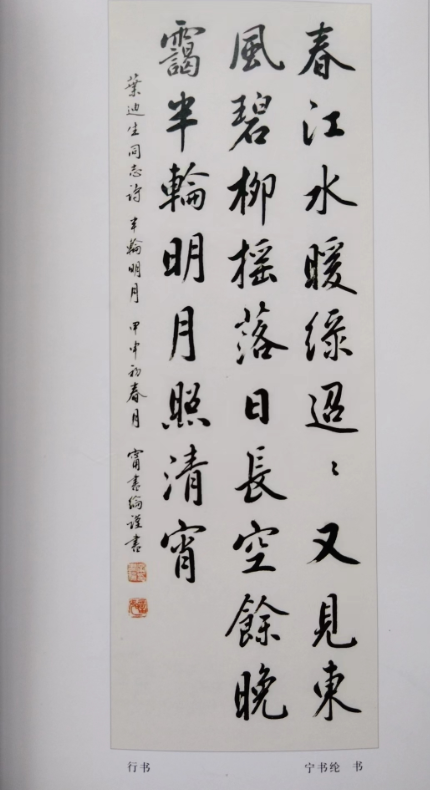 春江水暖绿迢〻又见東
風碧柳摇落日長空餘晚
靄半輪明月照清宵
葉迪生同志诗 半輪明月 甲申初春月 甯書綸谨書
行书
宁书纶 书